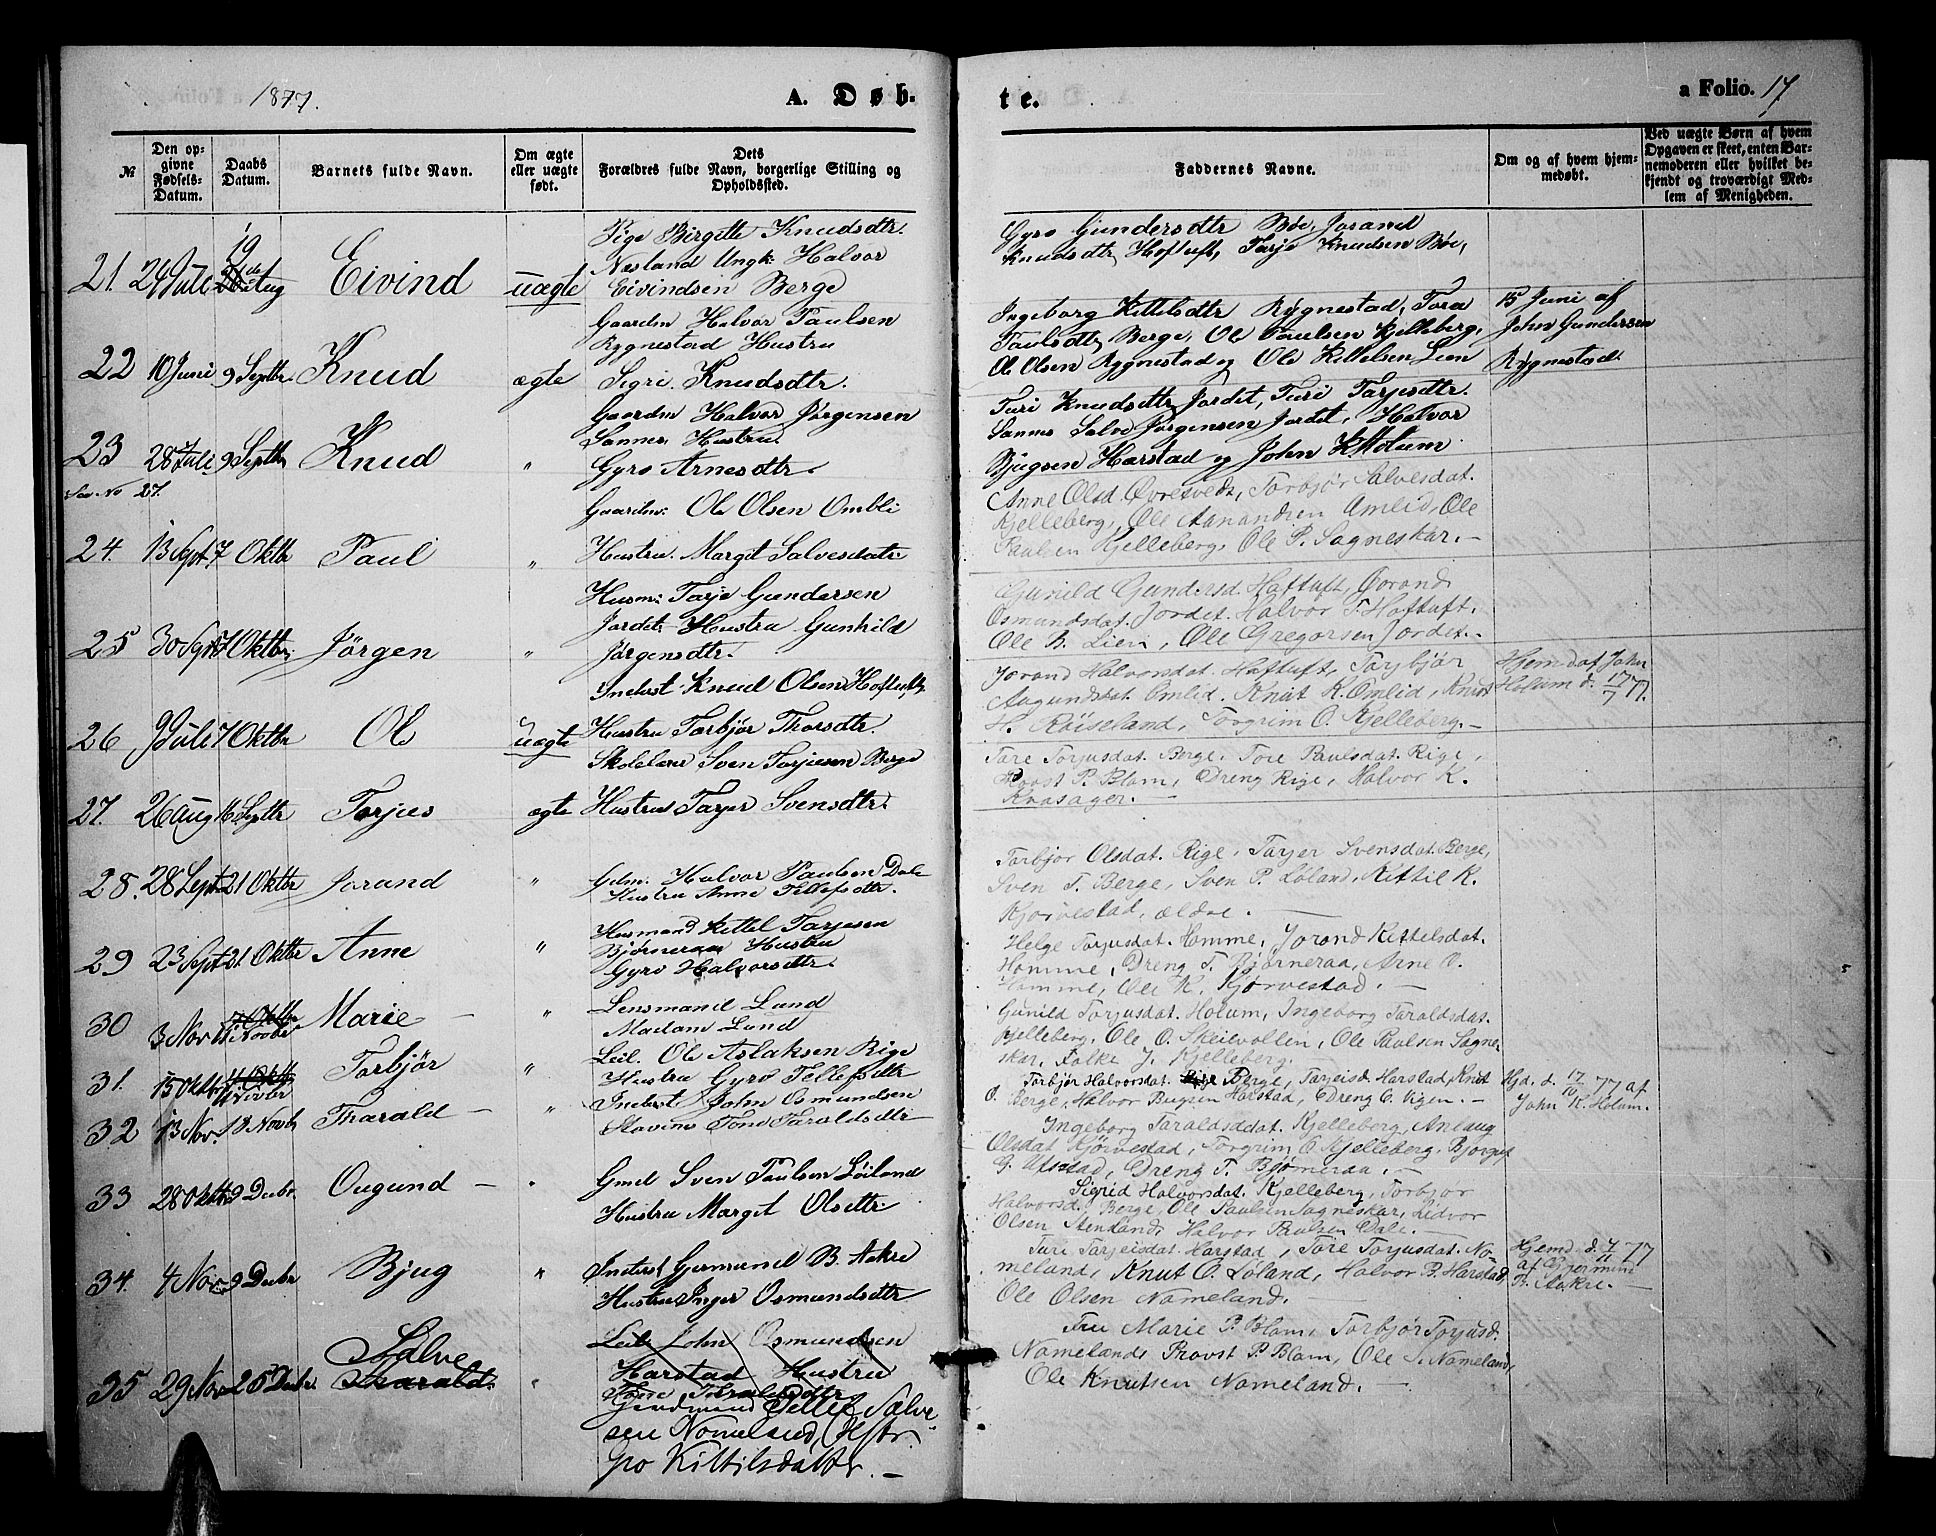 1877.
A. Døb-
№
Den op-
givne
Fødsels-
Datum.
Daabs
Datum.
Barnets fulde Navn.
Om ægte
eller uægte
født.
Dets
Forældres fulde Navn, borgerlige Stilling og
Opholdssted.
21. 24 Juli 19 Aug Eivind uægte
Pige Birgitte Knudsdtr.
Nesland Ungk: Halvor
Eivindsen Berge
22 10 Juni 9 Septbr. Knud ægte
Gaardm Halvor Paulsen
Rygnestad Hustru
Sigri Knudsdtr.
23 28 Juli 9 Septbr Knud "
Gaardm Halvor Jørgensen
Sannes Hustru
Gyro Arnesdtr.
See No 27.
24. 13 Sept. 7 Oktbr Paul "
Gaardm: Ole Olsen Ombli
Hustru. Margit Salvesdatr.
25 30 Sept 7 Oktbr. Jørgen "
Husm: Tarje Gundersen
Jordet. Hustru Gunhild
Jørgensdtr.
26 9 Juli 7 Oktbr Ole uægte
Inderst Knud Olsen Hoftuft
Hustru Torbjør Thorsdtr.
27. 26 Aug 16 Septbr Torjus ægte
Skolelærer Sven Torjusen Berge
Hustru Tarjer Svensdtr.
28. 28 Sept. 21 Oktbr Jorand "
Gdm. Halvor Paulsen Dale
Hustru Anne Tellefsdtr.
29 23 Sept 21 Oktbr Anne "
Husmand Kettel Tarjesen
Bjørneraa Hustru
Gyro Halvorsdtr.
30 3 Nov 11 Novbr Marie — "
Lensmand Lund
Madam Lund
31. 15 Oktbr 11 Novbr Torbjør "
Leil. Ole Aslaksen Rige
Hustru Gyro Tellefsdtr
32 13 Nov. 18 Novb Tharald — "
Inderst John Osmundsen
Stavenes Tone Taraldsdtr
33 28 Oktbr 9 Decbr. Ougund — "
Gmd Sven Paulsen Løiland
Hustru Margit Olsdtr
34. 4 Nov. 9 Decbr Bjug "
Inderst Germund B. Aakre
Hustru Inger Osmundsdtr
35 29 Nov 26 Decbr. Salve Tharald. "
Leil. John Osmundsen
Harstad Hustru
Tone Taraldsdtr
Gardmand Tellef Salve-
sen Nomeland, Hstr.
Gro Kittilsdatter. —
te.
a Folio. 17
Faddernes Navne.
Om og af hvem hjem-
medøbt.
Ved uægte Børn af hvem
Opgaven er skeet, enten Bar-
nemoderen eller hvilket be-
kjendt og troværdigt Med-
lem af Menigheden.
Gyro Gundersdtr Bøe, Jorand
Knudsdtr Hoftuft, Tarje Knudsen Bøe,
Ingeborg Kittelsdtr Rygnestad, Tora
Paulsdtr Berge, Ole Paulsen Kjelleberg,
Ole Olsen Rygnestad og Ole Kittelsen Lien
15 Juni af
John Gundersen
Rygnestad.
Turi Knudsdtr Jordet, Turi Tarjesdtr.
Sannes Salve Jørgensen Jordet, Halvor
Bjugsen Harstad og John K. Holum
Anne Olsd. Øvretveds, Torbjør Salvesdat.
Kjelleberg, Ole Aanandsen Omlid, Ole
Paulsen Kjelleberg, Ole P. Sagneskar. —
Gunild Gundersd. Haftuft, Jorand
Osmundsdat. Jordet. Halvor T. Haftuft.
Ole B. Lien, Ole Gregorsen Jordet. —
Jorand Halvorsdat. Haftuft, Torbjør
Augundsdat. Omlid. Knut K. Omlid, Knut
H. Røiseland, Torgrim O. Kjelleberg. —
Hjemd af John
Holum d. 17/7 77.
Tore Torjusdat. Berge, Tore Paulsdat. Rige,
Provst P. Blom, Dreng Rige, Halvor K.
Kvasager. —
Torbjør Olsdat. Rige, Tarjer Svensdat. Berge,
Sven T. Berge, Sven P. Løland, Kittil K.
Kjørvestad, ældre. —
Helge Torjusdat. Homme, Jorand Kittelsdat.
Homme, Dreng T. Bjørneraa, Arne O.
Homme, Ole K. Kjørvestad. —
Gunild Torjusdat. Holum, Ingeborg Taraldsdat.
Kjelleberg, Ole O. Skeievollen, Ole Paulsen Sagne-
skar, Folke J. Kjelleberg.
Torbjør Halvorsdat. Berge, Tarjeisd. Harstad, Knut
O. Berge, Halvor Bugsen Harstad, Dreng O. Vigen. —
Hjd. d. 17/10 77 af
John K. Holum.
Ingeborg Taraldsdat. Kjelleberg, Anlaug
Olsdat Kjørvestad, Torgrim O. Kjelleberg, Bjorguf
G. Ufsstad, Dreng T. Bjørneraa. —
Sigrid Halvorsdat. Kjelleberg, Torbjør
Halvorsd. Berge, Ole Paulsen Sagneskar, Lidvor
Olsen Stenland, Halvor Paulsen Dale. —
Ture Tarjeisdat. Harstad, Tore Torjusdat. No-
meland, Knut O. Løland, Halvor B. Harstad,
Ole Olsen Nomeland. —
Hjemd. d. 4/11 77
af Gjermund
B. Aakre. —
Fru Marie P. Blom, Torbjør Torjusd.
Nomeland, Provst P. Blom, Ole S. Nomeland,
Ole Knutsen Nomeland. —